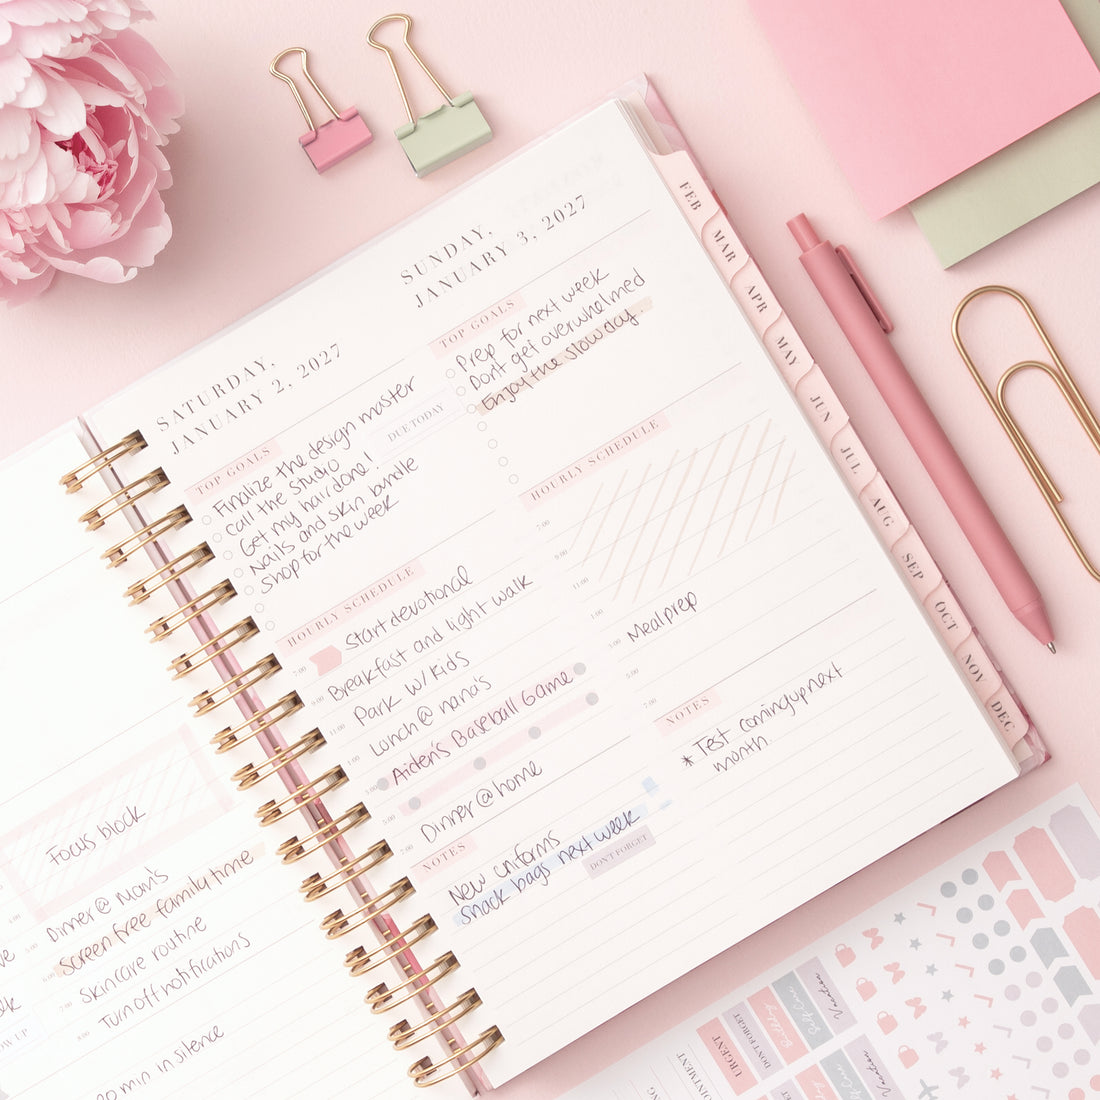 SATURDAY,
JANUARY 2, 2027
TOP GOALS
Finalize the design master
call the studio
DUE TODAY
Get my hair done!
Nails and skin bundle
Shop for the week
HOURLY SCHEDULE
Start devotional
7:00
Breakfast and light walk
9:00
Park w/ kids
11:00
Lunch @ nana's
1:00
Aiden's Baseball Game
3:00
5:00
Dinner @ home
7:00
NOTES
New uniforms
snack bags next week
DON'T FORGET
SUNDAY,
JANUARY 3, 2027
TOP GOALS
Prep for next week
Dont get overwhelmed
Enjoy the slow day.
HOURLY SCHEDULE
7:00
9:00
11:00
1:00
Meal prep
3:00
5:00
7:00
NOTES
* Test coming up next
month.
FEB
MAR
APR
MAY
JUN
JUL
AUG
SEP
OCT
NOV
DEC
Focus block
4:00
Dinner @ Mom's
5:00
Screen free family time
6:00
Skincare routine
7:00
Turn off notifications
8:00
min in silence
URGENT
DON'T FORGET
Birthday
Self Care
Vacation